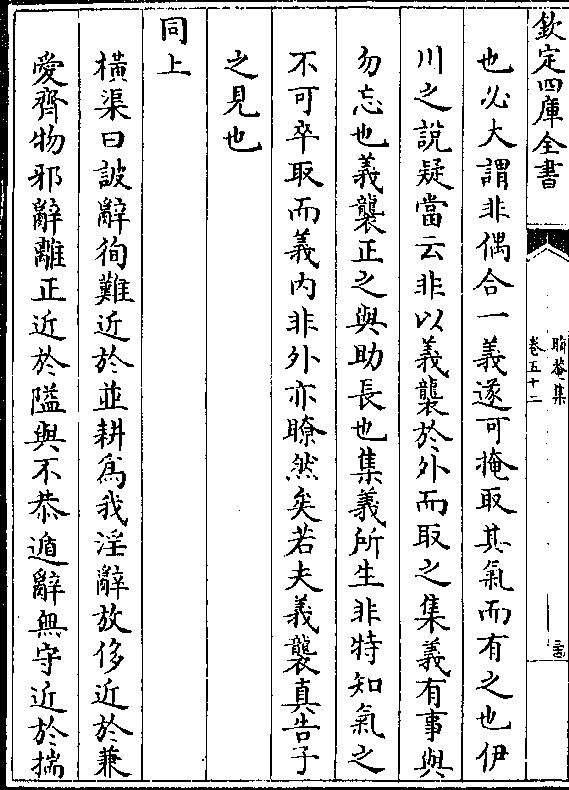 欽定四庫全書
晦菴集
卷五十二
也必大謂非偶合一義遂可掩取其氣而有之也伊
川之說疑當云非以義襲於外而取之集義有事與
勿忘也義襲正之與助長也集義所生非特知氣之
不可卒取而義内非外亦瞭然矣若夫義襲真告子
之見也
同上
橫渠曰詖辭徇難近於並耕為我淫辭放侈近於兼
愛齊物邪辭離正近於隘與不恭遁辭無守近於揣